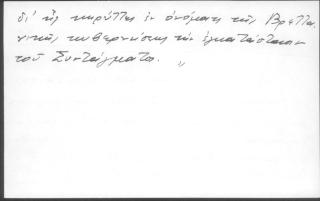 δι' ἧς κηρύττει ἐν ὀνόματι τῆς Βρεττα-
νικῆς κυβερνήσεως τὴν ἐγκατάστασιν
τοῦ Συντάγματος.